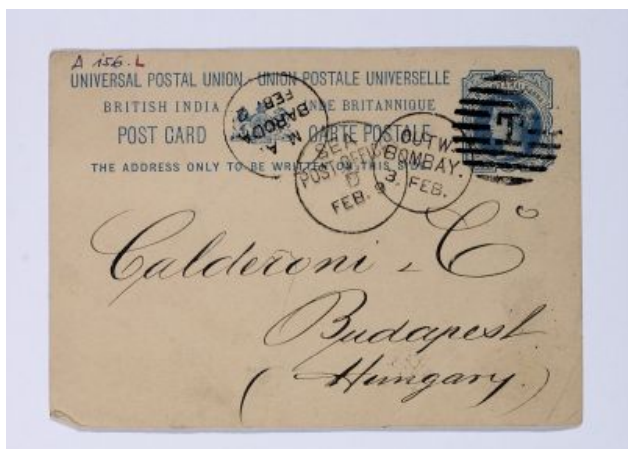 A 156.L
UNIVERSAL POSTAL UNION - UNION POSTALE UNIVERSELLE
BRITISH INDIA INDE BRITANNIQUE
POST CARD CARTE POSTALE
THE ADDRESS ONLY TO BE WRITTEN ON THIS SIDE
M. A.
BARODA
FEB
SEA
POST OFFICE
D
FEB.
OUTW.
BOMBAY.
3. FEB.
T
Calderoni & Co
Budapest
(Hungary.)